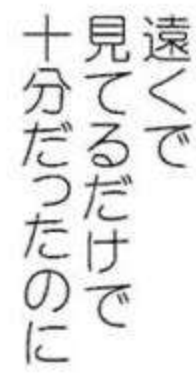 遠くで
見てるだけで
十分だったのに